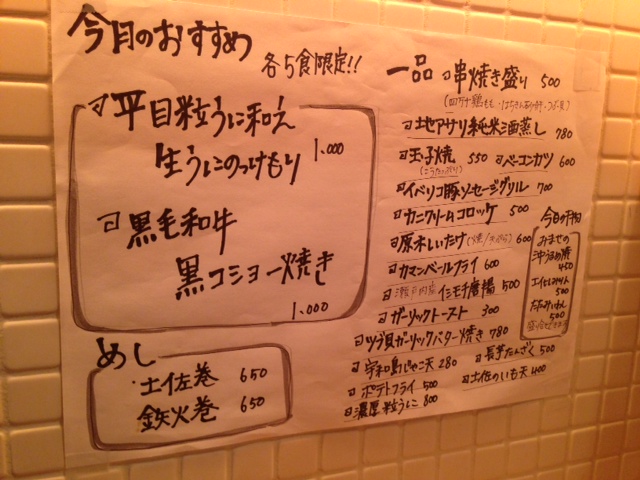 今日のおすすめ
各5食限定!!
平目粒うに和え
生うにのっけもり 1.000
黒毛和牛
黒コショー焼き
1.000
めし
土佐巻 650
鉄火巻 650
一品 串焼き盛り 500
地アサリ純米酒蒸し 780
玉子焼 550 ベーコンカツ 600
イベリコ豚ソーセージグリル 700
カニクリームコロッケ 500
原木しいたけ 600
カマンベールフライ 600
瀬戸内産 500
ガーリックトースト 300
ツブ貝ガーリックバター焼き 780
宇和島じゃこ天 280 長芋たんざく 500
ポテトフライ 500 土佐のいも天 400
濃厚粒うに 800
今日の干物
450
500
500